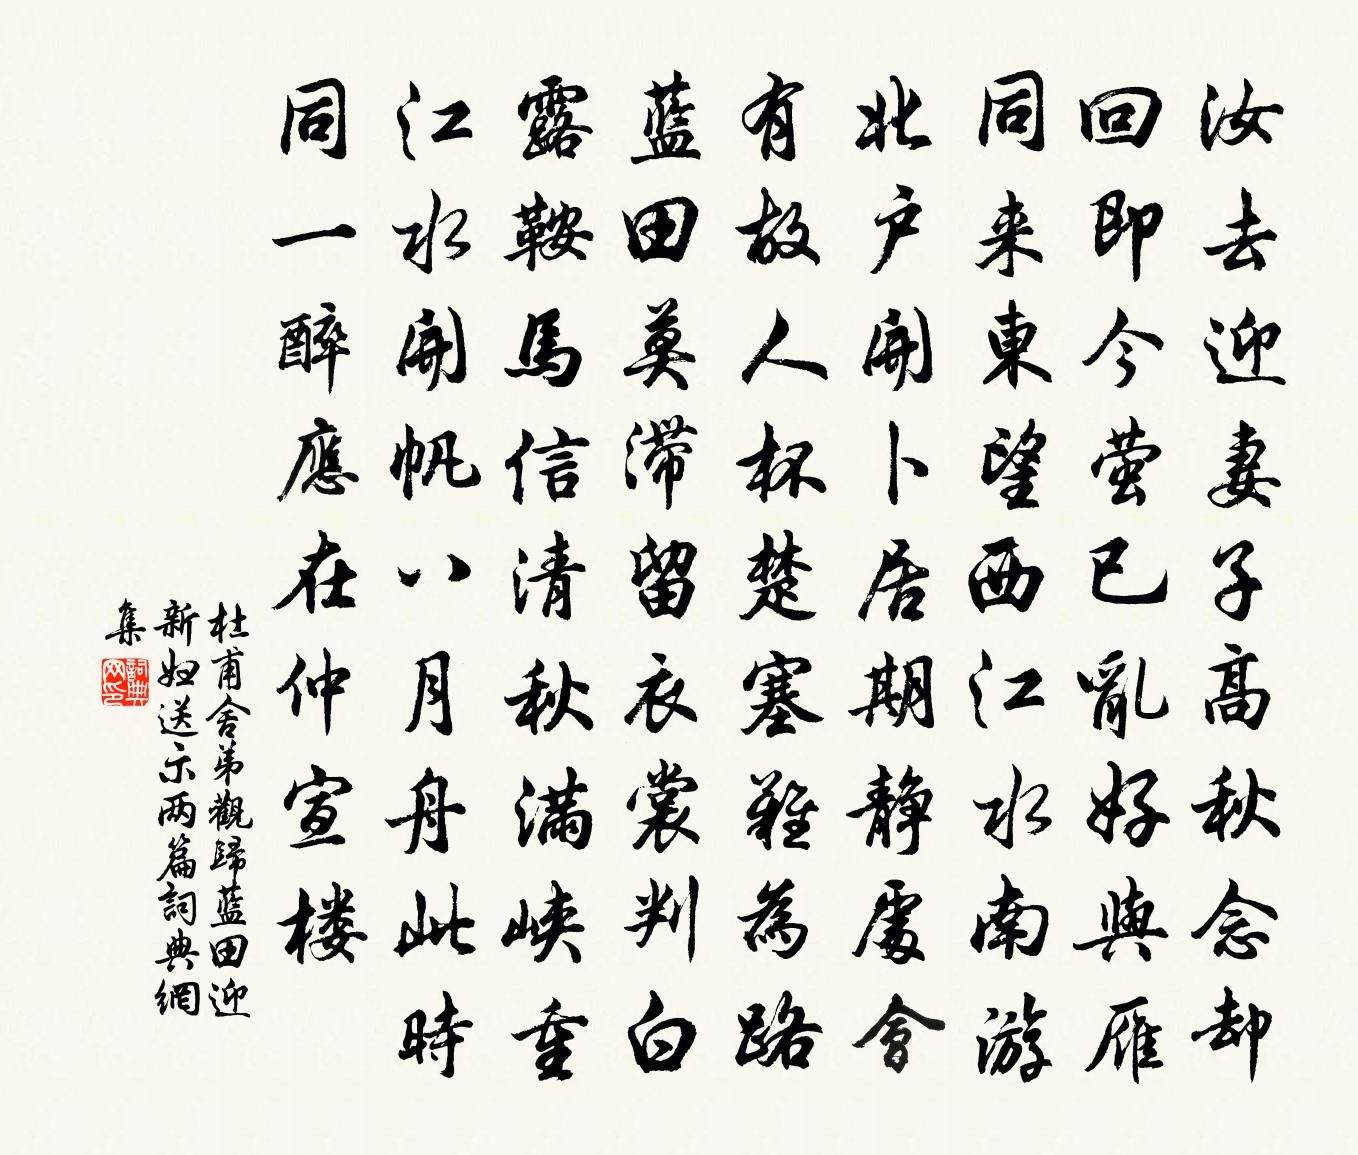 汝去迎妻子高秋念却
回即今萤已亂好與雁
同来東望西江水南游
北户開卜居期静處會
有故人杯楚塞難為路
藍田莫滞留衣裳判白
露鞍馬信清秋滿峽重
江水開帆八月舟此時
同一醉應在仲宣楼
杜甫舍弟觀歸藍田迎
新妇送示两篇詞典網
集
詞典网印